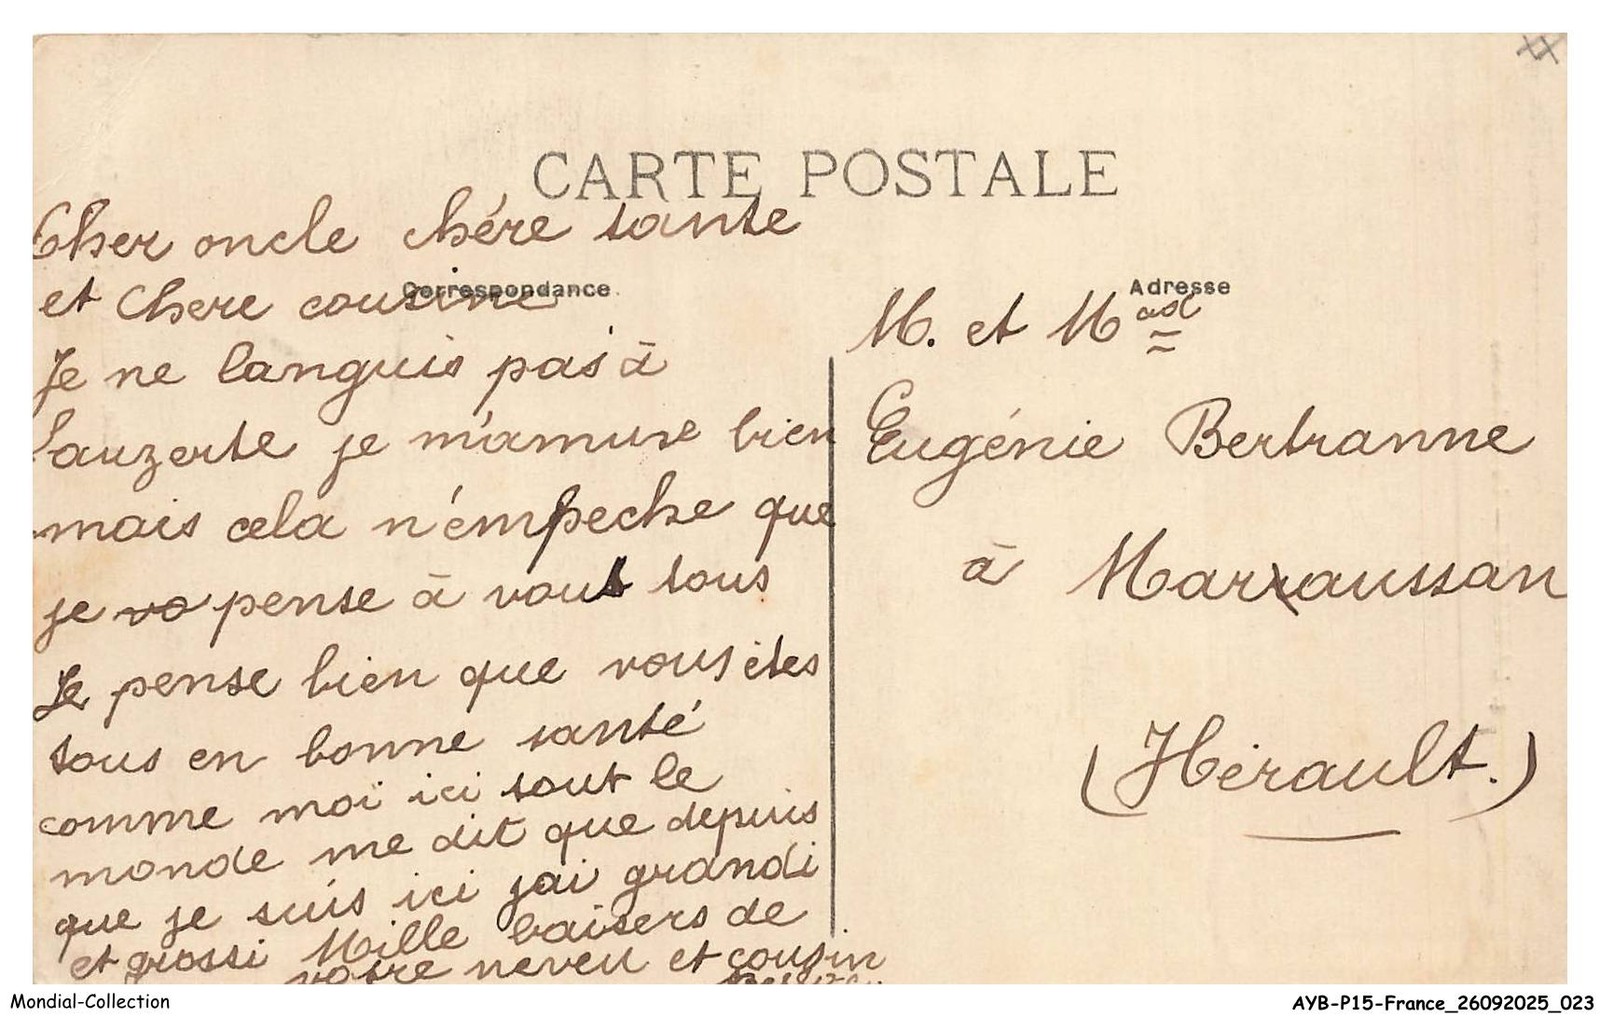 CARTE POSTALE
Cher oncle chére tante
et Chere cousine
Correspondance
Je ne languis pas à
Lauzerte je m'amuse bien
mais cela n'émpeche que
je vo pense à vous tous
Je pense bien que vous étes
tous en bonne santé
comme moi ici tout le
monde me dit que depuis
que je suis ici j'ai grandi
et grossi Mille baisers de
votre neveu et cousin
Adresse
M. et Mad
Eugénie Bertranne
à Maraussan
(Hérault.)
Mondial-Collection
AYB-P15-France_26092025_023